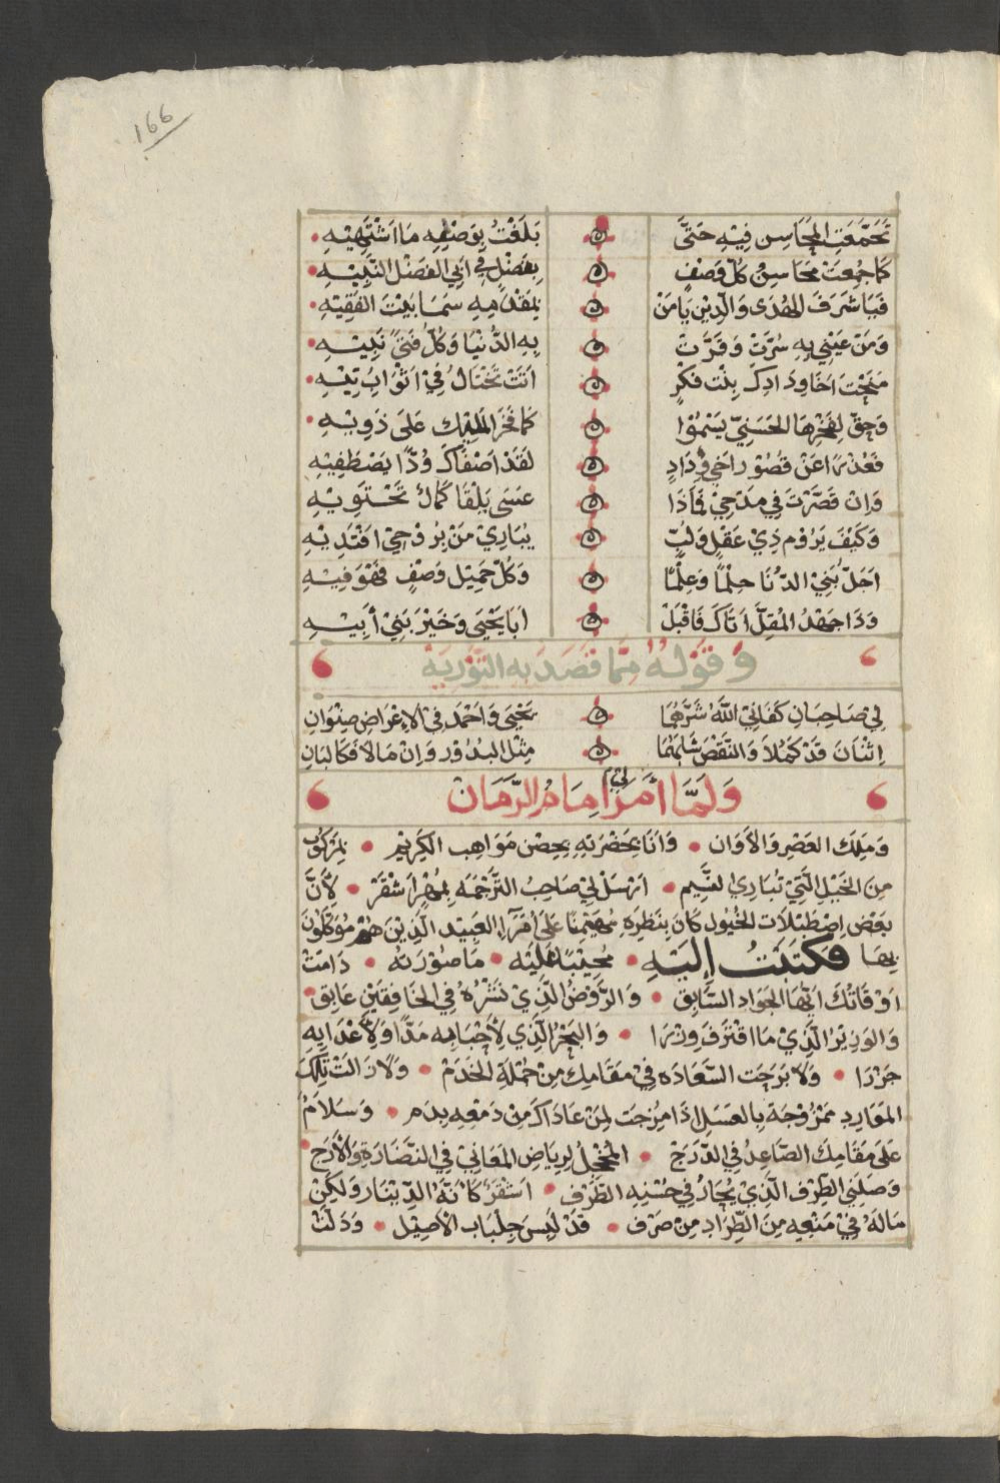 166
تَجَمَّعَتِ المَحَاسِن فِيْهِ حَتَّى ۞ بَلَغْتُ بِوَصْفِهِ مَا اَشْتَهِيْهِ
كَمَا جُمِعَتْ مَحَاسِنُ كُلّ وَصْفٍ ۞ بِفَضْلٍ فِي اَبِي الفَضْل النَّبِيْهِ
فَيَا شَرَفَ الهُدَى وَالدِّيْنِ يَا مَنْ ۞ بِمَقْدَمِهِ سَمَا بَيْتَ الفَقِيْهِ
وَمَنْ عَيْنِي بِهِ سُرَّتْ وَقَرَّتْ ۞ بِهِ الدُّنْيَا وَكُلُّ فَتًى نَبِيْهِ
مَنَحْتَ اَخَا وِدَادِكَ بِنْت فكْرٍ ۞ اَتَتْ تَخْتَالُ فِيْ اَثْوَابِ تِيْهِ
وَحِقّ لِفَخْرِهَا الحَسَنِيّ يَسْمُوْا ۞ كَمَا فَخَرَ المَلِيْك عَلَى ذَوِيْهِ
فَعُذْرًا عَنْ قُصُوْر اَخِي وِدَادٍ ۞ لَقَدْ اَصْفَاكَ وُدًّا يَصْطَفِيْهِ
وَاِنْ قَصَّرْتَ فِي مَدْحِيْ فَمَاذَا ۞ عَسَى يَلْقَا كَمَالُ تَحْتَوِيْهِ
وَكَيْفَ يَرُوْم ذِيْ عَقْلٍ وَلُبٍّ ۞ يُبَارِيْ مَنْ بِرُوْحِيْ اَفْتَدِيْهِ
اَجَلّ بَنِيْ الدُّنَا حِلْمًا وَعِلْمًا ۞ وَكُلّ جَمِيْل وَصْفٍ فَهْوَ فِيْهِ
وَذَا جهْدُ المُقِلّ اَتَاكَ فَاقْبَلْ ۞ اَبَا يَحْيَى وَخَيْرَ بَنِيْ أَبِيْهِ
وَقَوْلُهُ مِمَّا قَصَدَ بِهِ التَّوْرِيَهْ
لِي صَاحِبَانِ كَفَانِيْ اللّٰهُ شَرَّهُمَا ۞ يَحْيَى وَاَحْمَد فِي الاِعْرَاضِ صِنْوَانِ
اِثْنَانَ قَدْ كَمُلاَ وَالنَّقْصَ شَابَهُمَا ۞ مِثْل البُدُوْر وَاِنْ مَالاَ فَكَالبَانِ
وَلَمَّا اَمَرَ لِي اِمَامُ الزَّمَانْ
وَمَلِك العَصْرِ وَالاَوَان • وَاَنَا بِحَضْرَتِهِ بِحِصْن مَوَاهِب الكَرِيْم • بِمَرْكُوْب
مِنَ الخَيْلِ الَّتِيْ تُبَارِي النَّسِيم • اَرْسَلَ لِيْ صَاحِبُ التَّرْجُمَه بِمُهْرٍ اَشْقَرْ • لأَنَّ
بَعْضَ اِصْطَبْلاَت الخُيُول كَانَ بِنَظَرِهِ مُهَيْمِنًا عَلَى اُمَرَآءِ العَبِيْد الَّذِيْنَ هُمْ مُوَكَّلُوْنَ
بِهَا فَكَتَبْتُ إِلَيْهِ • مُجِيْبًا عَلَيْه • مَا صُوْرَتُهُ • دَامَتْ
اَوْقَاتُكَ اَيُّهَا الجَوَاد السَّابِق • وَالرَّوْضُ الَّذِيْ نَشْرُهُ فِي الخَافِقَيْنِ عَابِق •
وَالوَزِيْرُ الَّذِيْ مَا اقْتَرَفَ وِزْرَا • وَالبَحْرُ الَّذِي لأَحْبَابِه مَدًّا وَلأَعْدَايِهِ
جَزْرَا • وَلاَ بَرِحَت السَّعَادَه فِيْ مَقَامِك مِنْ جُمْلَةِ الخَدَمْ • وَلاَ زَالَتْ تِلْكَ
المَوَارِد مَمْزُوْجَة بِالعَسَل اِذَا مُزِجَت لِمَنْ عَادَاكَ مِنْ دَمْعِهِ بِدَم • وَسَلاَمٌ
عَلَى مَقَامِك الصَّاعِدُ فِي الدَّرَجْ • المُخْجِل لِرِيَاض المَعَانِيْ فِي النَّضَارَةِ وَالأَرَج •
وَصَلَنِي الطِّرْف الَّذِيْ يُحَارُ فِي حُسْنِهِ الطَّرْف • اَشْقَرَ كَاَنَّهُ الدِّيْنَار وَلكِنْ
مَالَهُ فِيْ مَنْعِهِ مِنَ الطِّرَادِ مِنْ صَرْف • قَدْ لَبِسَ جِلْبَاب الاَصِيْل • وَدَلَّتْ